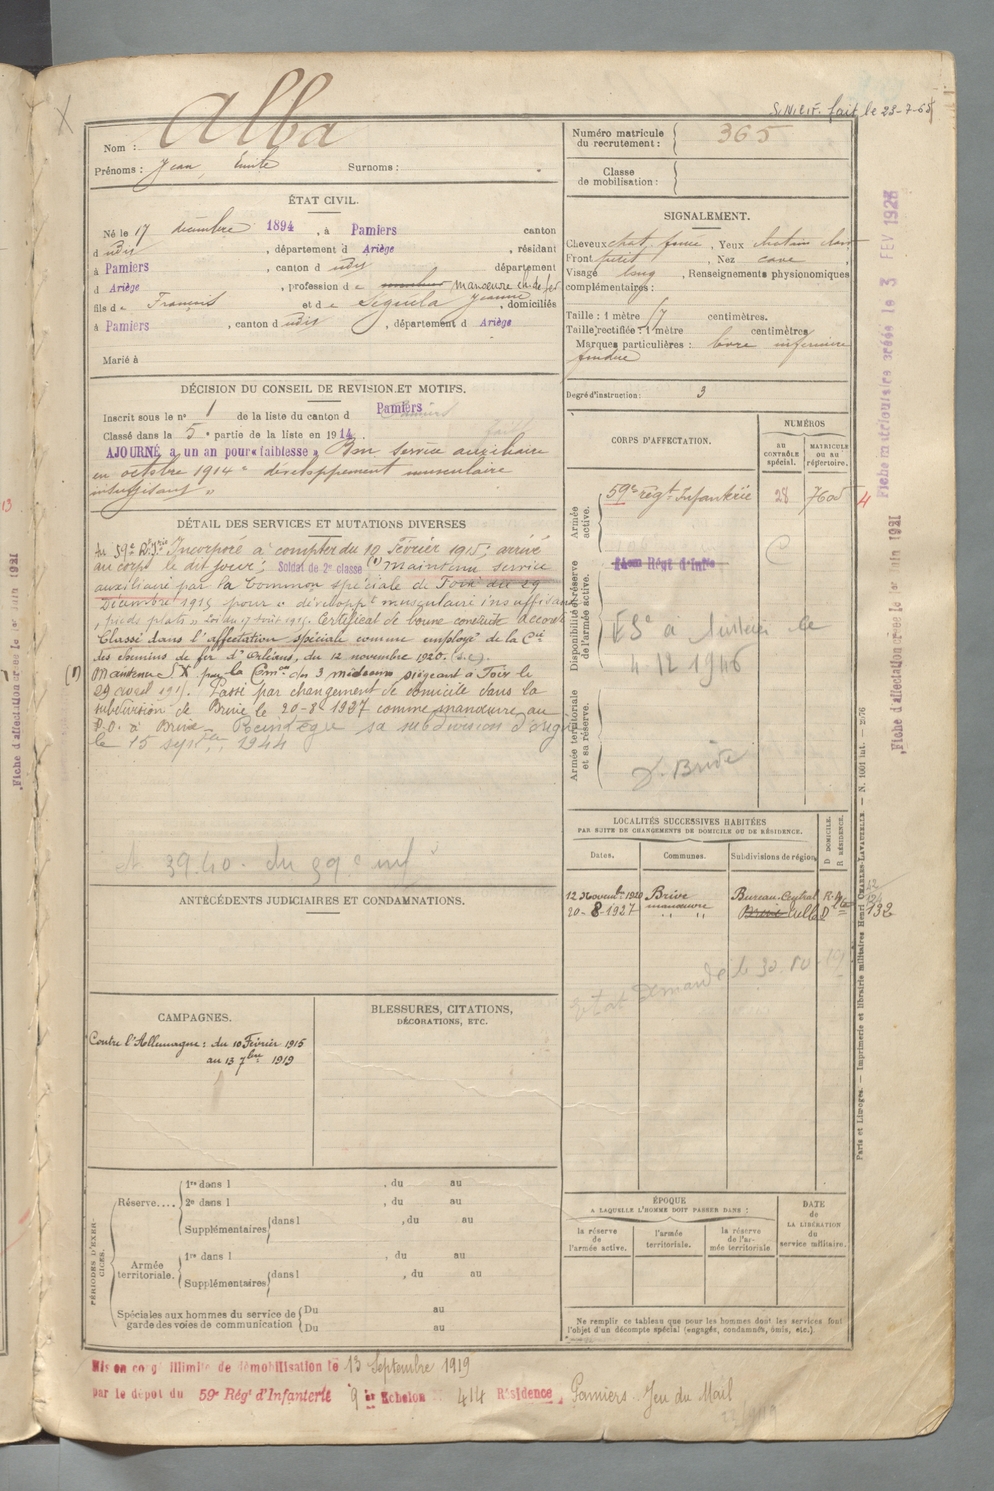 S.N.C.F. fait le 23-7-65
Alba
Nom :
Prénoms : Jean, Emile Surnoms :
Numéro matricule
du recrutement : 365
Classe
de mobilisation :
ÉTAT CIVIL.
Né le 17 décembre 1894, à Pamiers canton
d udis, département d Ariège, résidant
à Pamiers, canton d udis département
d Ariège, profession d e manœuvre ch. de fer
fils d e François et d e Seguela Jeanne, domiciliés
à Pamiers, canton d udis, département d Ariège
Marié à
SIGNALEMENT.
Cheveux chat. foncé, Yeux chatain clair
Front petit, Nez cave,
Visage long, Renseignements physionomiques
complémentaires :
Taille : 1 mètre 67 centimètres.
Taille rectifiée : 1 mètre centimètres
Marques particulières : lèvre inférieure
fendue
Degré d'instruction : 3
DÉCISION DU CONSEIL DE REVISION ET MOTIFS.
Inscrit sous le n° 1 de la liste du canton d Pamiers
Classé dans la 5e partie de la liste en 1914.
AJOURNÉ à un an pour « faiblesse » Bon service auxiliaire
en octobre 1914 "développement musculaire
insuffisant"
DÉTAIL DES SERVICES ET MUTATIONS DIVERSES
Au 59e Rt d'Irie Incorporé à compter du 10 Février 1915; arrivé
au corps le dit jour; Soldat de 2e classe (1) maintenu service
auxiliaire par la Common spéciale de Foix du 29
Décembre 1915 pour « développt musculaire insuffisant
, pieds plats » Loi du 17 Août 1915. Certificat de bonne conduite accordé
Classé dans l'affectation spéciale comme employé de la Cie
des chemins de fer d'Orléans, du 12 novembre 1920. (s.c).
(1) Maintenu SX par la Comon des 3 médecins siégeant à Foix le
29 avril 1917. Passé par changement de domicile dans la
subdivision de Brive le 20-8-1927 comme manœuvre au
P.O. à Brive. Réintègre sa subdivision d'origine
le 15 septbre 1944
39.40. du 59e inf
CORPS D'AFFECTATION.
NUMÉROS
AU
CONTRÔLE
spécial.
MATRICULE
OU AU
RÉPERTOIRE.
Armée
active.
59e régt Infanterie 28 7605
Disponibilité et réserve
de l'armée active.
14eme Régt d'Infie
4.12.1946
Armée territoriale
et sa réserve.
S. Brive
LOCALITÉS SUCCESSIVES HABITÉES
PAR SUITE DE CHANGEMENTS DE DOMICILE OU DE RÉSIDENCE.
Dates. Communes. Subdivisions de région. D DOMICILE. R RÉSIDENCE.
12 Novembre 1920 Brive Bureau Central R.
20-8-1927 manœuvre " " Brive Tulle D 132
Etat demandé le 30.
ANTÉCÉDENTS JUDICIAIRES ET CONDAMNATIONS.
CAMPAGNES.
Contre l'Allemagne : du 10 Février 1915
au 13 7bre 1919
BLESSURES, CITATIONS,
DÉCORATIONS, ETC.
PÉRIODES D'EXERCICES.
Réserve.... 1re dans l , du au
2e dans l , du au
Supplémentaires dans l , du au
Armée
territoriale. 1re dans l , du au
Supplémentaires dans l , du au
Spéciales aux hommes du service de
garde des voies de communication Du au
Du au
ÉPOQUE
A LAQUELLE L'HOMME DOIT PASSER DANS :
la réserve
de
l'armée active.
l'armée
territoriale.
la réserve
de l'ar-
mée territoriale
DATE
de
LA LIBÉRATION
du
service militaire.
Ne remplir ce tableau que pour les hommes dont les services font
l'objet d'un décompte spécial (engagés, condamnés, omis, etc.).
Mis en congé illimité de démobilisation le 13 Septembre 1919
par le dépôt du 59e Régt d'Infanterie 9 e Echelon 414 Résidence, Pamiers. Jeu du Mail
Fiche matriculaire créée le 3 FEV 1923
Fiche d'affectation créée le 1er Juin 1921
Paris et Limoges. — Imprimerie et librairie militaires Henri CHARLES-LAVAUZELLE. — N. 1001 int. — 2976
Fiche d'affectation créée le 1er Juin 1921
13